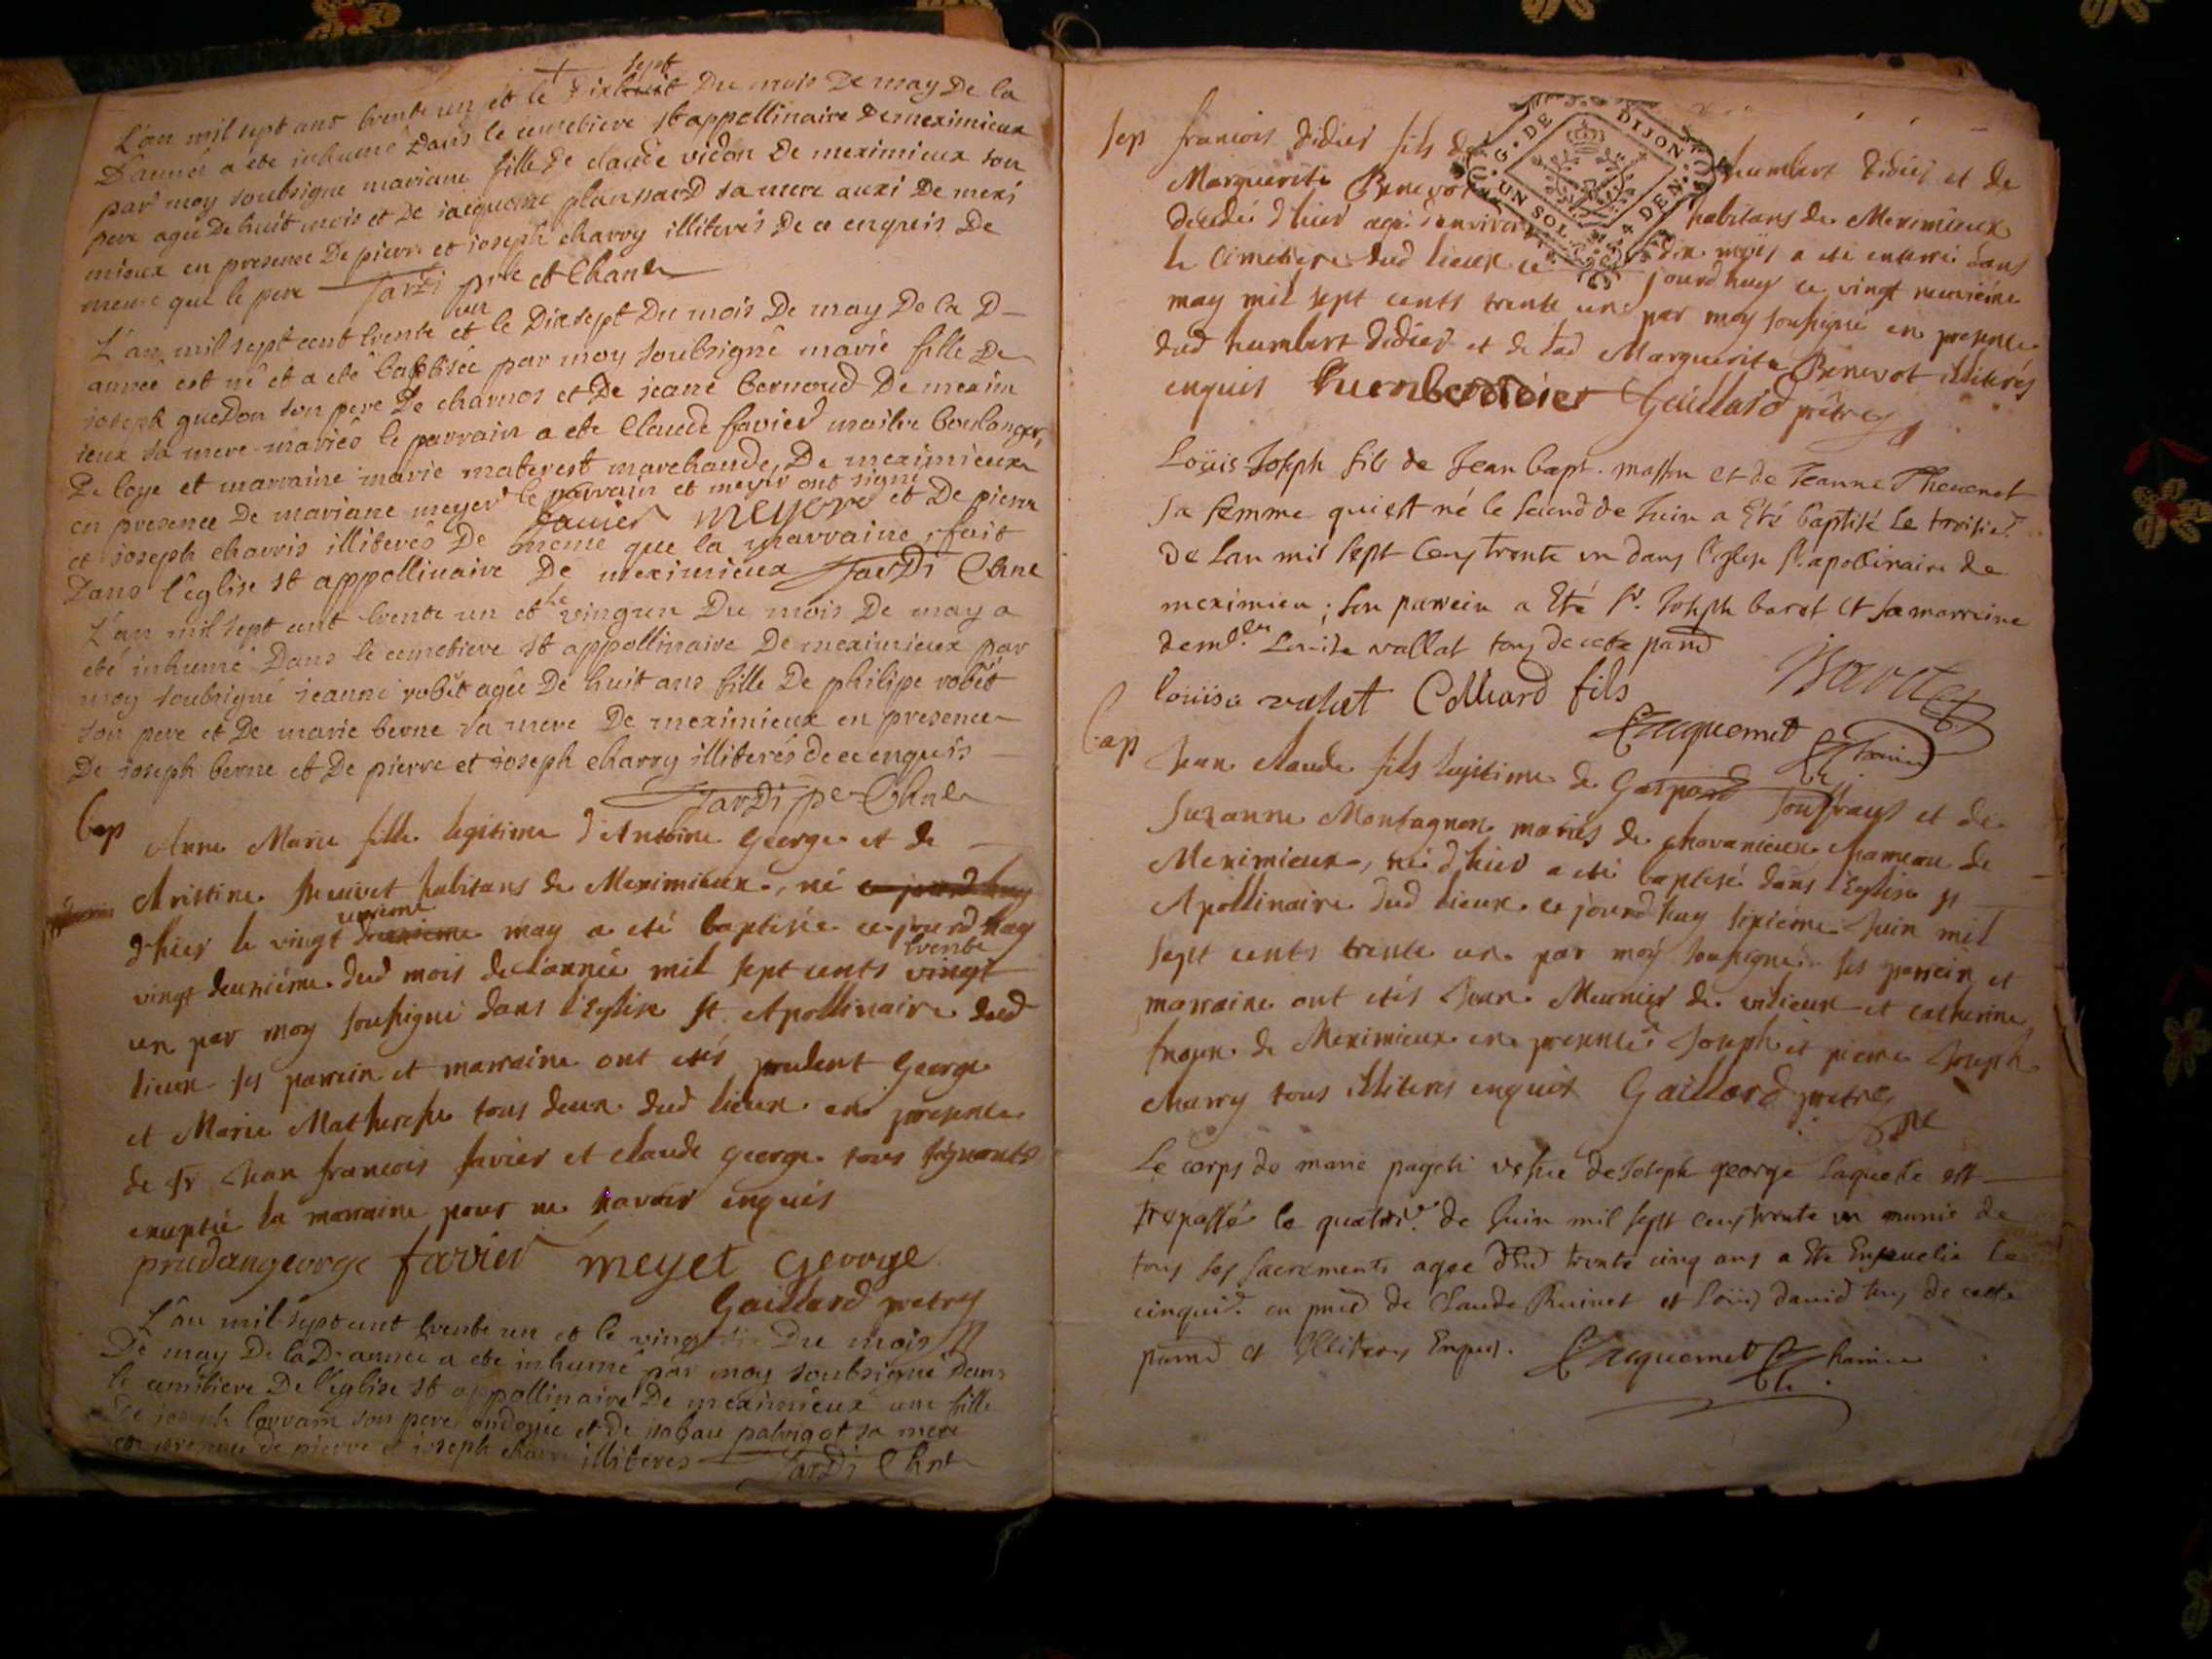 L'an mil sept ant trente un et le dixhuit sept Du mois De may De la
D'année a ete inhumé Dans le cemetiere st appollinaire De meximieux
par moy soubsigne mariane fille De claude vidon De meximieux son
pere agée De huit mois et De jacqueme planpard sa mere auxi De mexi
mieux en presence De pierre et joseph charry illiterés De ce enquis De
meme que le pere Jardi ptre et Chane
L'an mil sept cent trente un et le Dixsept Du mois De may De la D
année est né et a eté baptisée par moy soubsigné marie fille De
joseph guedon son pere De charnos et De jeane bernoud De mexim
ieux sa mere mariés le parrain a ete Claude favier maitre boulanger,
De loye et marraine marie materest marchande, De meximieux
en presence De mariane meyer le parrain et meyer ont signé et De pierre
favier meyere
et joseph charris illiterés De meme que la marraine, fait
Dans l'eglise st appollinaire De meximieux Jardi Chne
L'an mil sept cent trente un et le vingun Du mois De may a
eté inhumé Dans le cemetiere st appollinaire De meximieux par
moy soubsigné jeanne robêt agée De huit ans fille De philipe robêt
son pere et De marie berne sa mere De meximieux en presence
De joseph berne et De pierre et joseph charry illiterés de ce enquis
Jardi ptre Chne
bap Anne Marie fille legitime d'Antoine George et de
Christine habitans de Meximieux, né ce jourd huy
d'hier le vingt deuxieme unieme may a eté baptisée ce jourd huy
vingt deuxiéme dud mois de l'année mil sept cents vingt trente
un par moy sousigné dans l'Eglise st Apollinaire dud
lieux ses parrein et marraine ont etés prudent George
et Marie Matheresse tous deux dud lieux en presence
de sr Jean francois favier et claude george tous signants
exeptée la marraine pour ne savoir enquis
prudangeorge favier meyet George
Gaillard pretre
L'an mil sept cent trente un et le vingt Du mois
De may De la D année a ete inhumé par moy soubsigné dans
le cemitiere De l'eglise st appollinaire De meximieux une fille
De joseph lorrain son pere ondoyée et de isabau patrigot sa mere
en presence de pierre et joseph charri illiteres Jardi Chne
sep francois didier fils de humbert didier et de
Marguerite Benevot habitans de Meximieux
decedé d'hier agé d'environ dix mois a eté enterré dans
le Cimetiere dud lieux ce jourd huy ce vingt neuviéme
may mil sept cents trente un par moy sousigné en presence
dud humbert didier et de lad Marguerite Benevot illiterés
enquis humberdidier Gaillard prêtre
G. DE DIJON
UN SOL. 4 DEN.
Loüis Joseph fils de Jean bapt. masson et de Jeanne Thevenet
sa femme qui est né le second de Juin a Eté baptisé le troisie
de Lan mil sept cens trente un dans l'eglise st apollinaire de
meximieu; son parrein a Eté sr. Joseph baret et sa marreine
demlle Louise vallat tous de cette parse
loüise valat Colliard fils
Jacquemet
bap Jean claude fils legitime de Gaspard Jouffrays et de
Suzanne Montagnon mariés de chavanieux hameau de
Meximieux, né d'hier a eté baptisé dans l'Eglise st
Apollinaire dud lieux ce jourd huy sixiéme Juin mil
sept cents trente un par moy sousigné ses parrein et
marraine ont etés Jean Meunier de vilieux et catherine
de Meximieux en presence Joseph et pierre Joseph
charry tous illiteres enquis Gaillard pretre
Le corps de marie pageti vefve de Joseph george Laquelle est
trepassée le quatrie. de Juin mil sept cens trente un munie de
tous ses sacrements agee trente cinq ans a Ete Ensevelie le
cinquie. en prnce de Claude Ruinet et Loüis david tous de cette
parse et Illiteres Enquis. Jacquemet